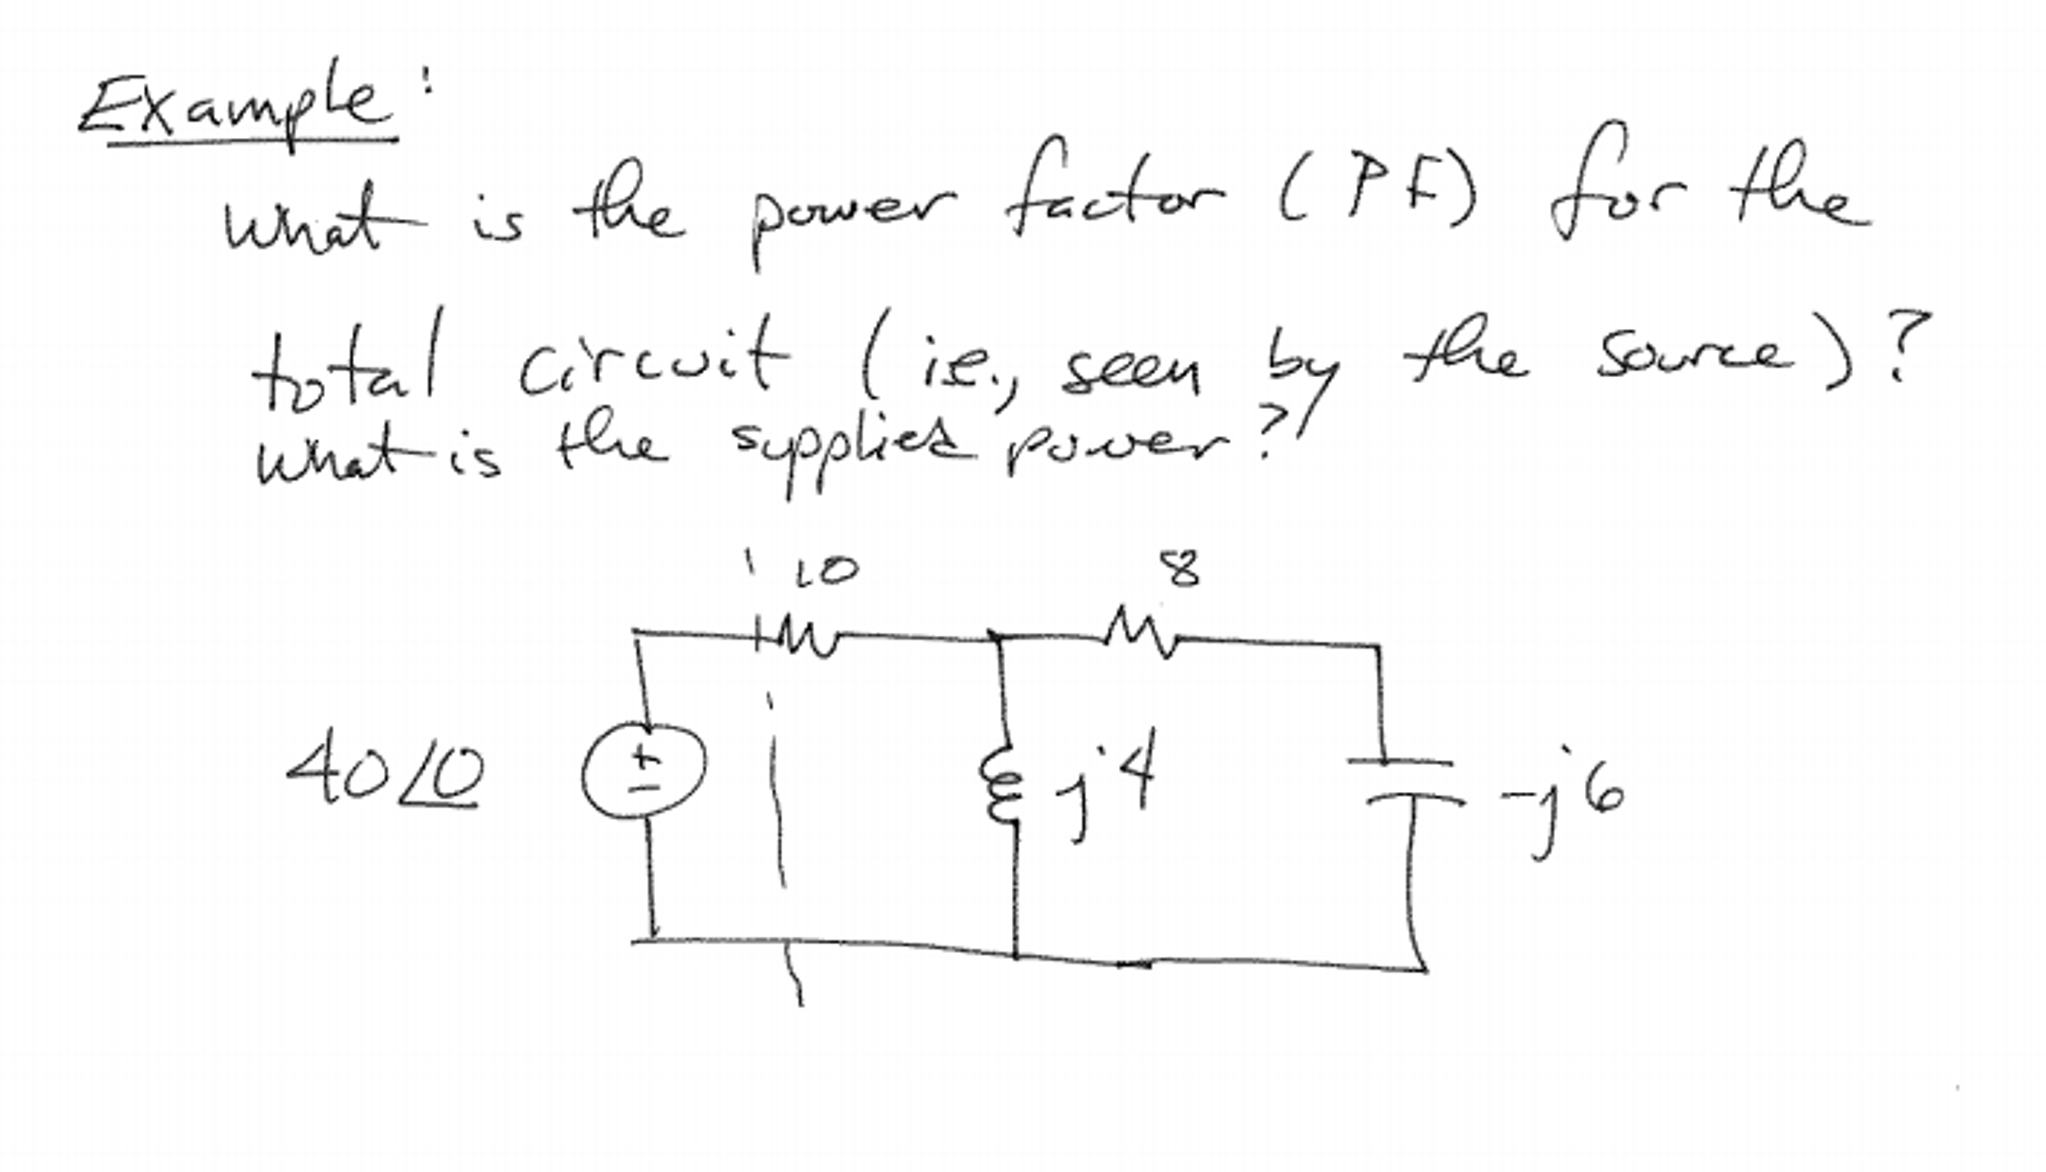 Example:
What is the power factor (PF) for the
total circuit (ie., seen by the source)?
What is the supplied power?
10
8
40∠0
+
−
j4
-j6